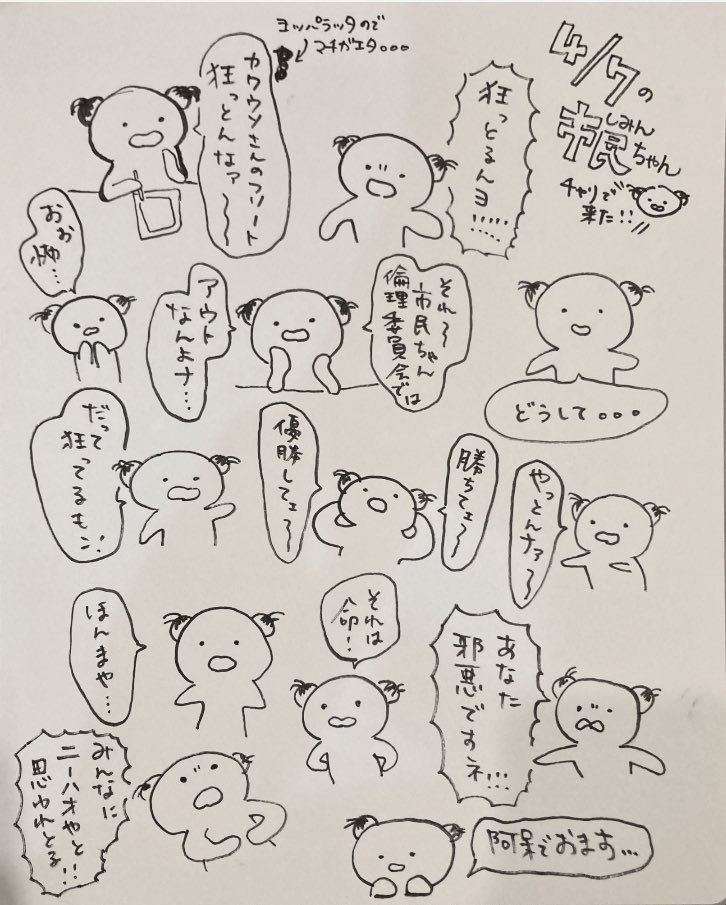 4/7の
市民ちゃん
しみん
チャリで
来た!!
ヨッパラッタので
マチガエタ。。。
狂っとるんヨ!!!!!
カワウソさんのツイート
狂っとんなァ〜〜
どうして。。。
それ〜
市民ちゃん
倫理委員会では
アウト
なんよナ…
おお
怖…
やっとんナァ〜
勝ちてェ〜
優勝してェ〜
だって
狂ってるもン
あなた
邪悪ですネ…
それは
命!
ほんまや…
阿保でおます…
みんなに
ニーハオやと!!
思われとる